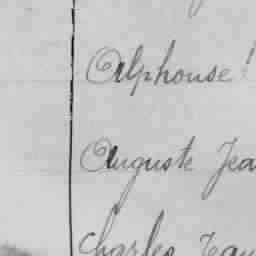 Alphonse
Auguste Jea
Charles